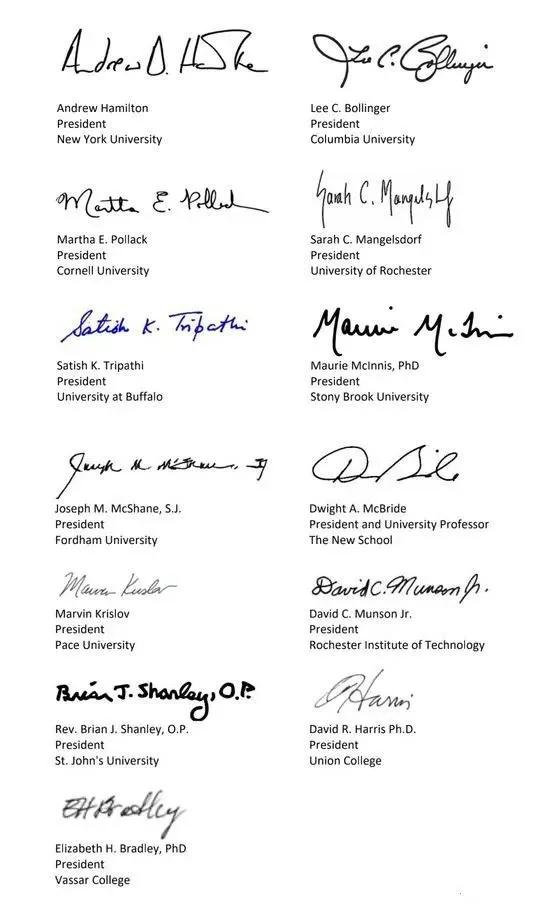 Andrew D. Hamilton
Lee C. Bollinger
Andrew Hamilton
President
New York University
Lee C. Bollinger
President
Columbia University
Martha E. Pollack
Sarah C. Mangelsdorf
Martha E. Pollack
President
Cornell University
Sarah C. Mangelsdorf
President
University of Rochester
Satish K. Tripathi
Maurie McInnis
Satish K. Tripathi
President
University at Buffalo
Maurie McInnis, PhD
President
Stony Brook University
Joseph M. McShane, SJ
Joseph M. McShane, S.J.
President
Fordham University
Dwight A. McBride
President and University Professor
The New School
Marvin Krislov
David C. Munson Jr.
Marvin Krislov
President
Pace University
David C. Munson Jr.
President
Rochester Institute of Technology
Brian J. Shanley, O.P.
D Harris
Rev. Brian J. Shanley, O.P.
President
St. John's University
David R. Harris Ph.D.
President
Union College
EHBradley
Elizabeth H. Bradley, PhD
President
Vassar College